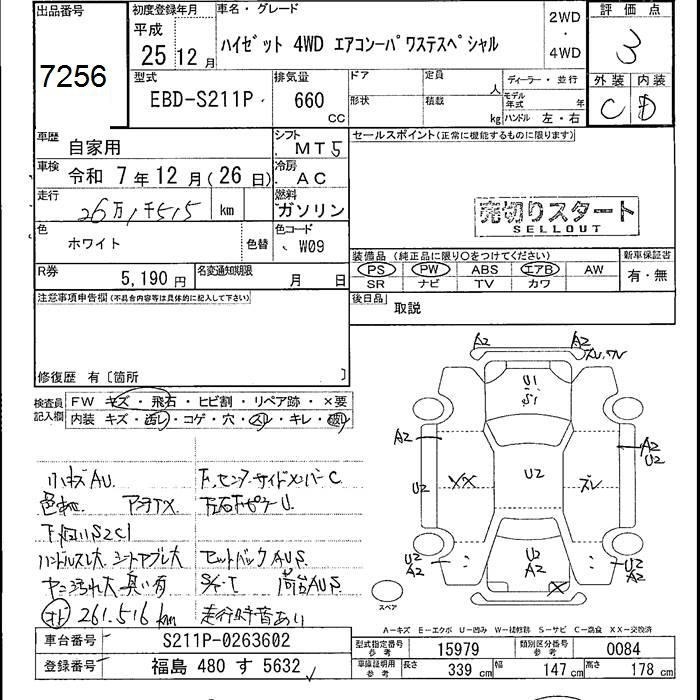 出品番号
7256
初度登録年月
平成
25年 12月
車名・グレード
ハイゼット 4WD エアコンーパワステスペシャル
2WD
・
4WD
評価点
3
外装 内装
C D
型式
EBD-S211P
排気量
660
CC
ドア
形状
定員
人
積載
kg
ディーラー・並行
モデル年式 年
ハンドル 左・右
車歴
自家用
シフト
MT5
車検
令和 7年 12月(26日)
冷房
AC
走行
26万1千515 km
燃料
ガソリン
色
ホワイト
色替
色コード
W09
R券
5,190円
名変通知期限
月 日
セールスポイント(正常に機能するものに限ります)
売切りスタート
SELLOUT
装備品(純正品に限り○をつけてください)
新車保証書
PS PW ABS エアB AW
有・無
SR ナビ TV カワ
後日品
取説
注意事項申告欄(不具合内容等は具体的に記入して下さい)
修復歴 有〔箇所 〕
検査員記入欄
FW キズ・飛石・ヒビ割・リペア跡・×要
内装 キズ・コゲ・穴・スレ・キレ
小キズAU.
F.センターサイドメンバーC
下回りS2C1
ハンドルスレ大 シートヤブレ大
セットバックAUS.
臭い有
荷台AUS.
261.516 km
走行時音あり
A2
A2
U1
S1
A2
U2
XX
U2
ズレ
A2
U2
U2
A2
U2
A2
U2
A2
X
スペア
A-キズ E-エクボ U-凹み W-補修跡 S-サビ C-腐食 XX-交換済
車台番号
S211P-0263602
登録番号
福島 480 す 5632
型式指定番号
参考
15979
類別区分番号
参考
0084
車庫証明用
参考
長さ
339 cm
幅
147 cm
高さ
178 cm